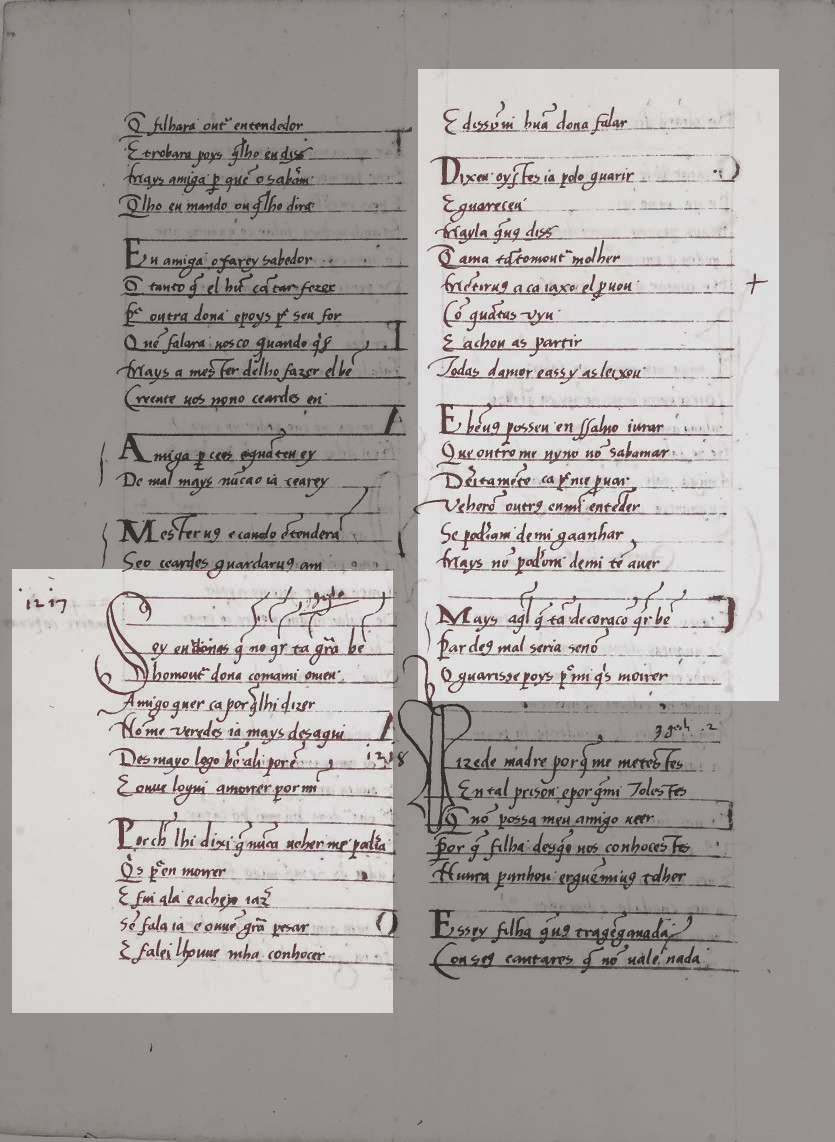 Q̃ filhara out̃ entendedor
E trobara poys q̃lho eu diss̃
Mays amiga ꝑ que o sabam̃
Q̃lho eu mando ou q̃lho dira
Eu amiga o farey sabedor
Q̃ tanto q̃ el hũ cãtar fezer
ꝑ outra dona e poys ꝑ seu for
Q nõ falara uosco quando q̃s
Mays a mester delho fazer el bẽ
Creente uos nono ceardes en
Amiga ꝑ cees eguãten ey
De mal mays nũcao ia cearey
Mester us e canolo ẽtendera
Seo ceardes guardarus am
1217
Sey eu donas q̃ no q̃r ta grã bẽ
homout̃ dona comami oueu
Amigo quer ca por q̃lhi dizer
Nõ me veredes ia mays desaqui
Desmayo logo bẽ ali porẽ
E ouue logui a morrer por mi
Porch lhi dixi q̃ nũca ueher me
Q̃s ꝑen morrer
E fui ala e acheyo iaz̃
Sẽ fala ia e ouuẽ grã pesar
E falei lhouue mha conhocer
E dissomi hũa dona falar
Dixeu oystes ia polo guarir
E guareceu
Mayla q̃us diss̃
Q̃ ama tãtomout̃ molher
Metirus a ca iaxo el ꝓuou
Cõ quãtas vyu
E achou as partir
Todas damor e assy as leixou
E bẽ us posseu en ssaluo iurar
Que outro me nyno nõ sabamar
Deitamẽto ca ꝑ me ꝓuar
Veherõ outrꝯ enmi entẽder
Se podiam de mi gaanhar
Mays nõ podẽrõ de mi tẽ auer
Mays aql̃ q̃ tã decoraço q̃r bẽ
Par deꝯ mal seria senõ
O guarisse poys ꝑ mi q̃s morrer
1218
Dizede madre porq̃ me metestes
En tal prison e por q̃mi tolestes
Q̃ nõ possa meu amigo ueer
Por q̃ filha desq̃o uos conhocestes
Nunca punhou erguẽmiuꝯ tolher
E ssey filha q̃uꝯ trag̃ẽganada
Con seꝯ cantares q̃ nõ ualẽ nada